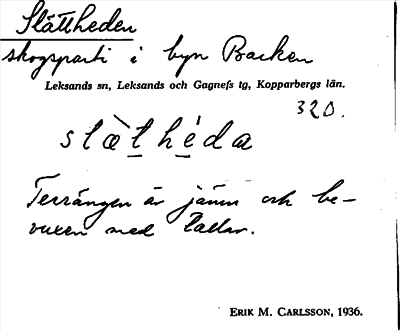 Slättheden
skogsparti i byn Backen
Leksands sn, Leksands och Gagnefs tg, Kopparbergs län.
320.
slæ̀t̲hé̲da
Terrängen är jämn och be-
vuxen med tallar.
ERIK M. CARLSSON, 1936.